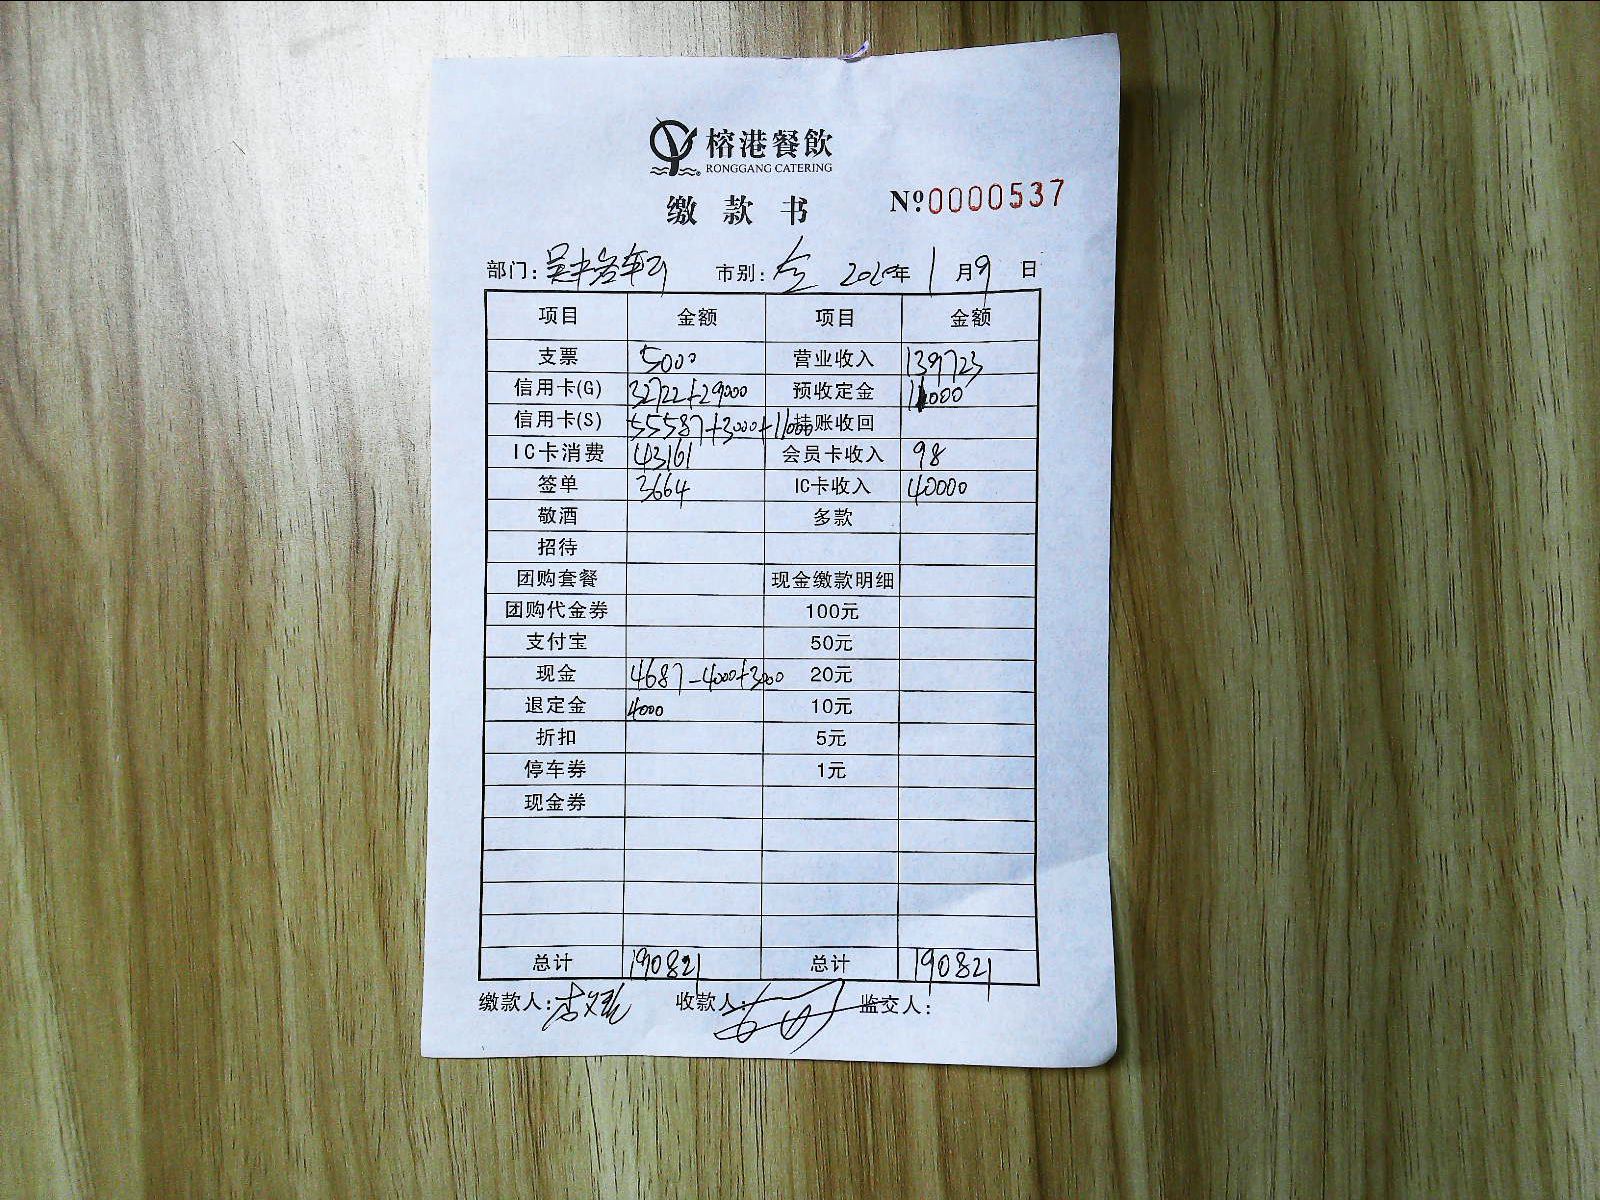 榕港餐飲
RONGGANG CATERING
缴款书 Nº0000537
部门: 市别:全 2020年1月9日
项目 金额 项目 金额
支票 5000 营业收入 139723
信用卡(G) 32722+29000 预收定金 11000
信用卡(S) 55587+3000+11000 挂账收回
IC卡消费 43161 会员卡收入 98
签单 3664 IC卡收入 40000
敬酒 多款
招待
团购套餐 现金缴款明细
团购代金券 100元
支付宝 50元
现金 4687-4000+3000 20元
退定金 4000 10元
折扣 5元
停车券 1元
现金券
总计 190821 总计 190821
缴款人: 收款人: 监交人: